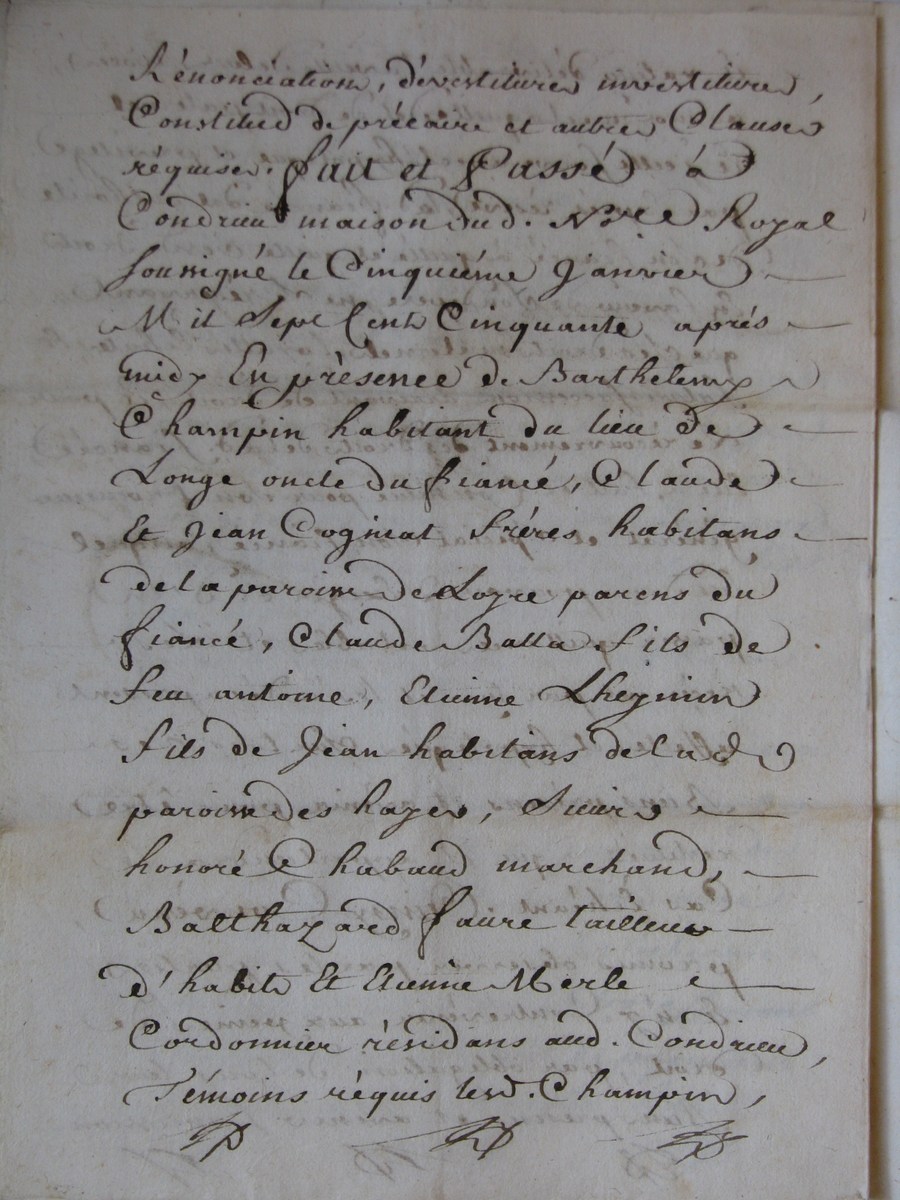 Rénonciation, dévestiture investiture,
Constitud de précaire et autres Clauses
réquises. fait et Passé à
Condrieu maison dud. Nore Royal
soussigné le Cinquiéme Janvier
Mil Sept Cent Cinquante aprés
midy En présence de Barthelemy
Champin habitant du lieu de
Longe oncle du fiancé, Claude
Et Jean Cogniat fréres habitans
de la paroisse de Loyre parens du
fiancé, Claude Balla fils de
feu antoine, Etienne Lheymin
fils de Jean habitans de lad
paroisse des hayes, Sieurs
honoré Chabaud marchand,
Balthazard faure tailleur
d'habits Et Etienne Merle
Cordonnier résidans aud. Condrieu,
Témoins réquis lesd. Champin,